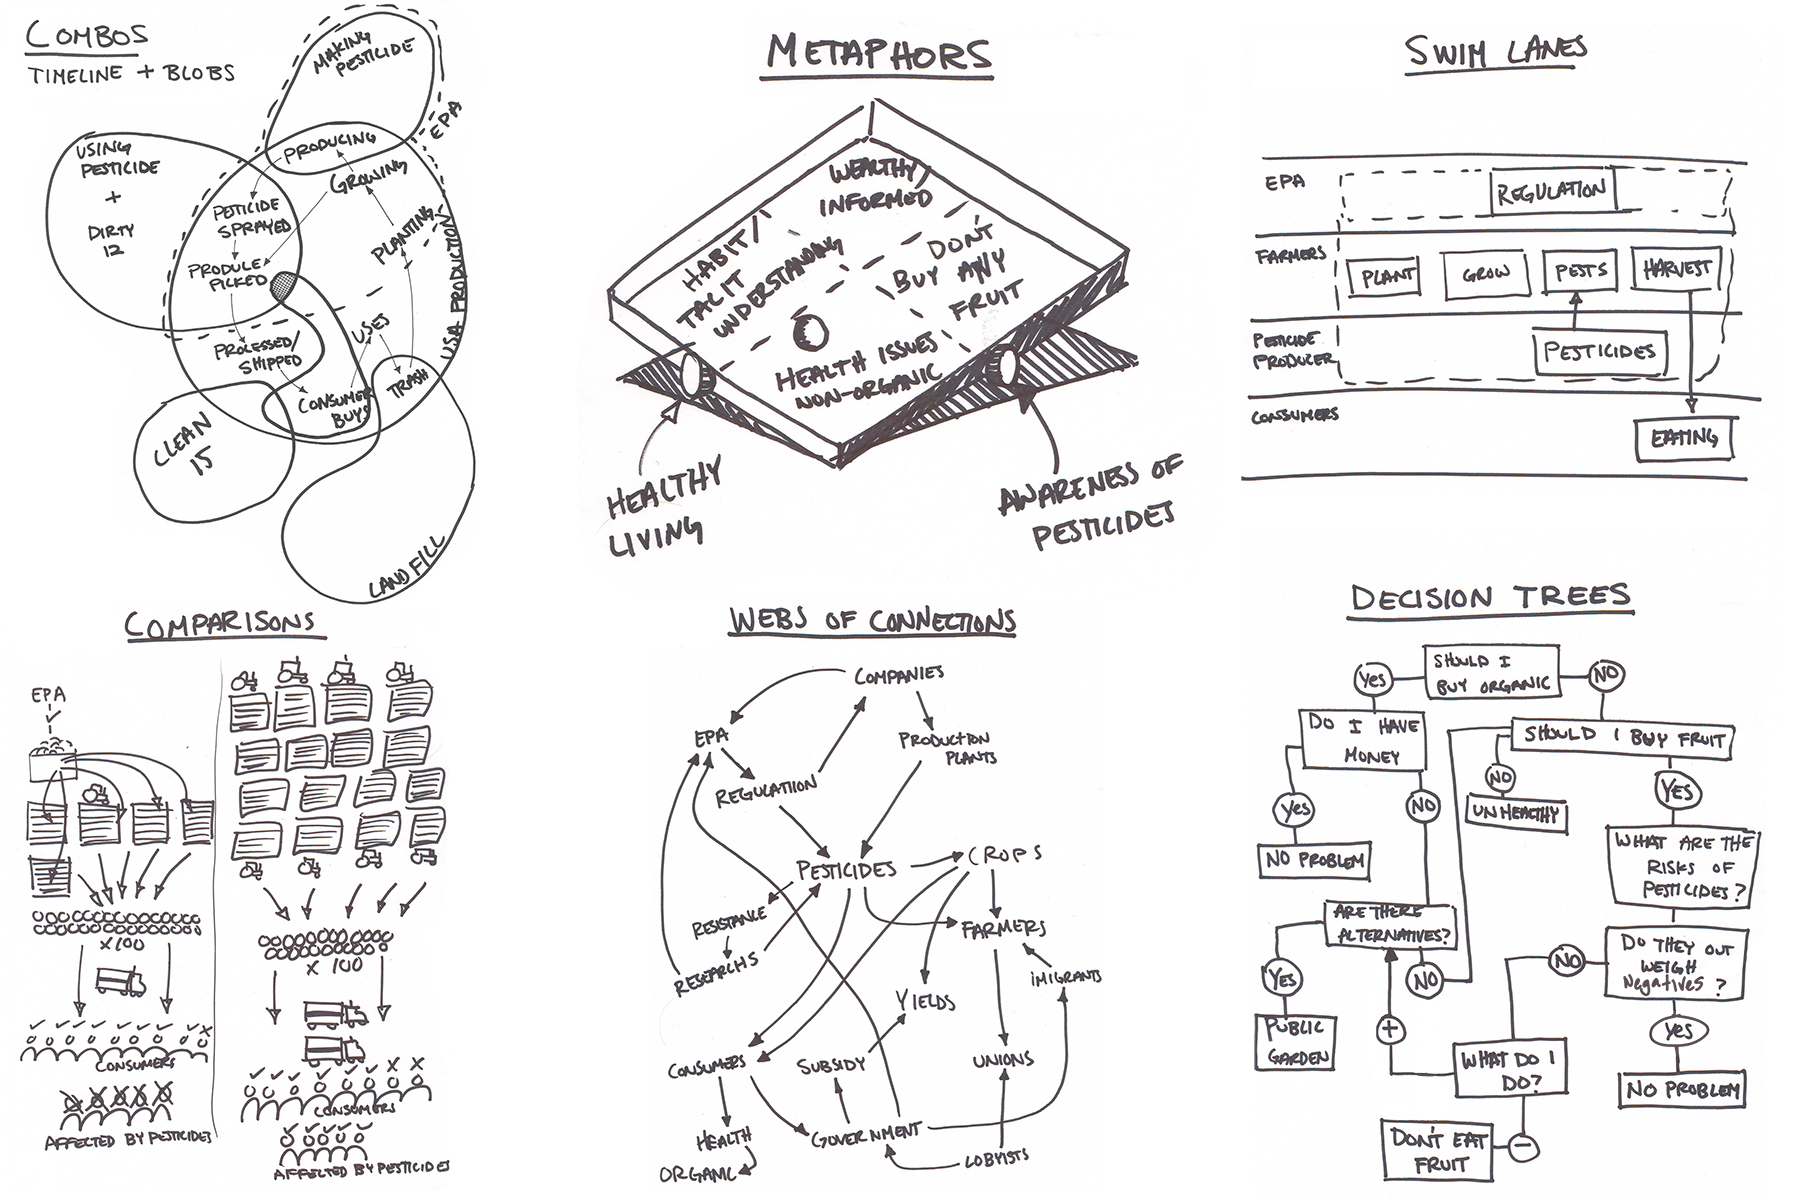 COMBOS
TIMELINE + BLOBS
MAKING
PESTICIDE
EPA
USING
PESTICIDE
+
DIRTY
12
PRODUCING
GROWING
PETICIDE
SPRAYED
PLANTING
PRODUCE
PICKED
USA PRODUCTION
PROCESSED/
SHIPPED
USES
TRASH
CONSUMER
BUYS
CLEAN
15
LANDFILL
METAPHORS
WEALTHY/
INFORMED
HABIT/
TACIT
UNDERSTANDING
DON'T
BUY ANY
FRUIT
HEALTH ISSUES
NON-ORGANIC
HEALTHY
LIVING
AWARENESS OF
PESTICIDES
SWIM LANES
EPA
REGULATION
FARMERS
PLANT
GROW
PESTS
HARVEST
PESTICIDE
PRODUCER
PESTICIDES
CONSUMERS
EATING
COMPARISONS
EPA
X100
CONSUMERS
AFFECTED BY PESTICIDES
X 100
CONSUMERS
AFFECTED BY PESTICIDES
WEBS OF CONNECTIONS
COMPANIES
EPA
PRODUCTION
PLANTS
REGULATION
PESTICIDES
CROPS
RESISTANCE
FARMERS
RESEARCHS
YIELDS
IMIGRANTS
CONSUMERS
SUBSIDY
UNIONS
HEALTH
GOVERNMENT
ORGANIC
LOBYISTS
DECISION TREES
SHOULD I
BUY ORGANIC
Yes
NO
DO I HAVE
MONEY
SHOULD I BUY FRUIT
Yes
NO
NO
YES
UNHEALTHY
NO PROBLEM
WHAT ARE THE
RISKS OF
PESTICIDES?
ARE THERE
ALTERNATIVES?
DO THEY OUT
WEIGH
Negatives?
Yes
NO
NO
Yes
PUBLIC
GARDEN
+
WHAT DO I
DO?
NO PROBLEM
DON'T EAT
FRUIT
-